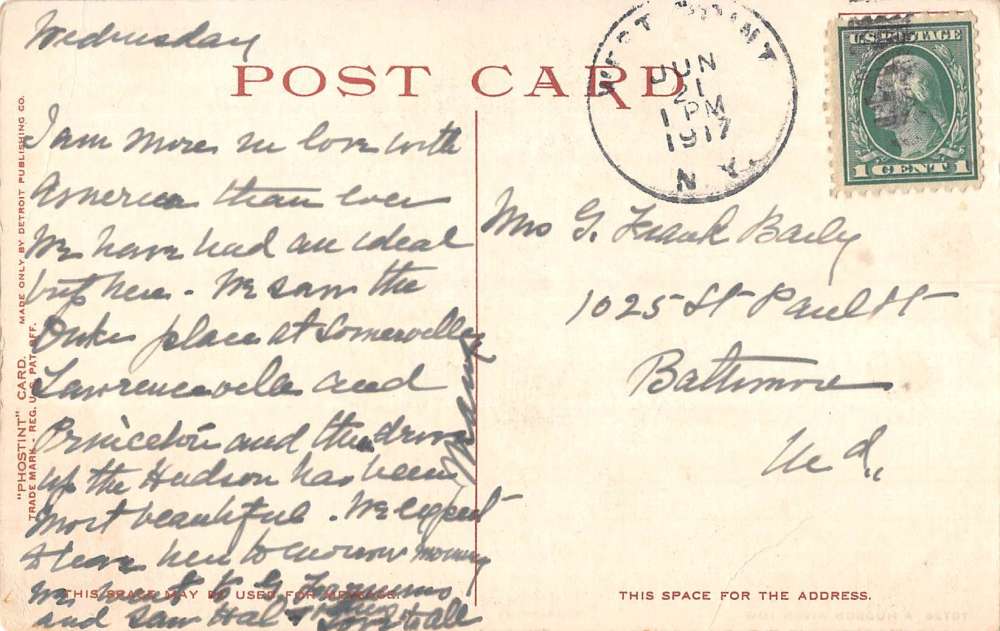 Wednesday
POST CARD
WEST POINT
JUN
21
1 PM
1917
N.Y.
U.S. POSTAGE
1 CENT 1
I am more in love with
America than ever
We have had an ideal
trip here - We saw the
Duke place at Somerville
Lawrenceville and
Princeton and the drive
up the Hudson has been
most beautiful. We expect
to leave here tomorrow morning
We went to G
and saw Hal
Love to all
Mrs G. Frank Baily
1025 St Paul St
Baltimore
Md.
"PHOSTINT" CARD. MADE ONLY BY DETROIT PUBLISHING CO.
TRADE MARK - REG. U.S. PAT. OFF.
THIS SPACE MAY BE USED FOR MESSAGE.
THIS SPACE FOR THE ADDRESS.